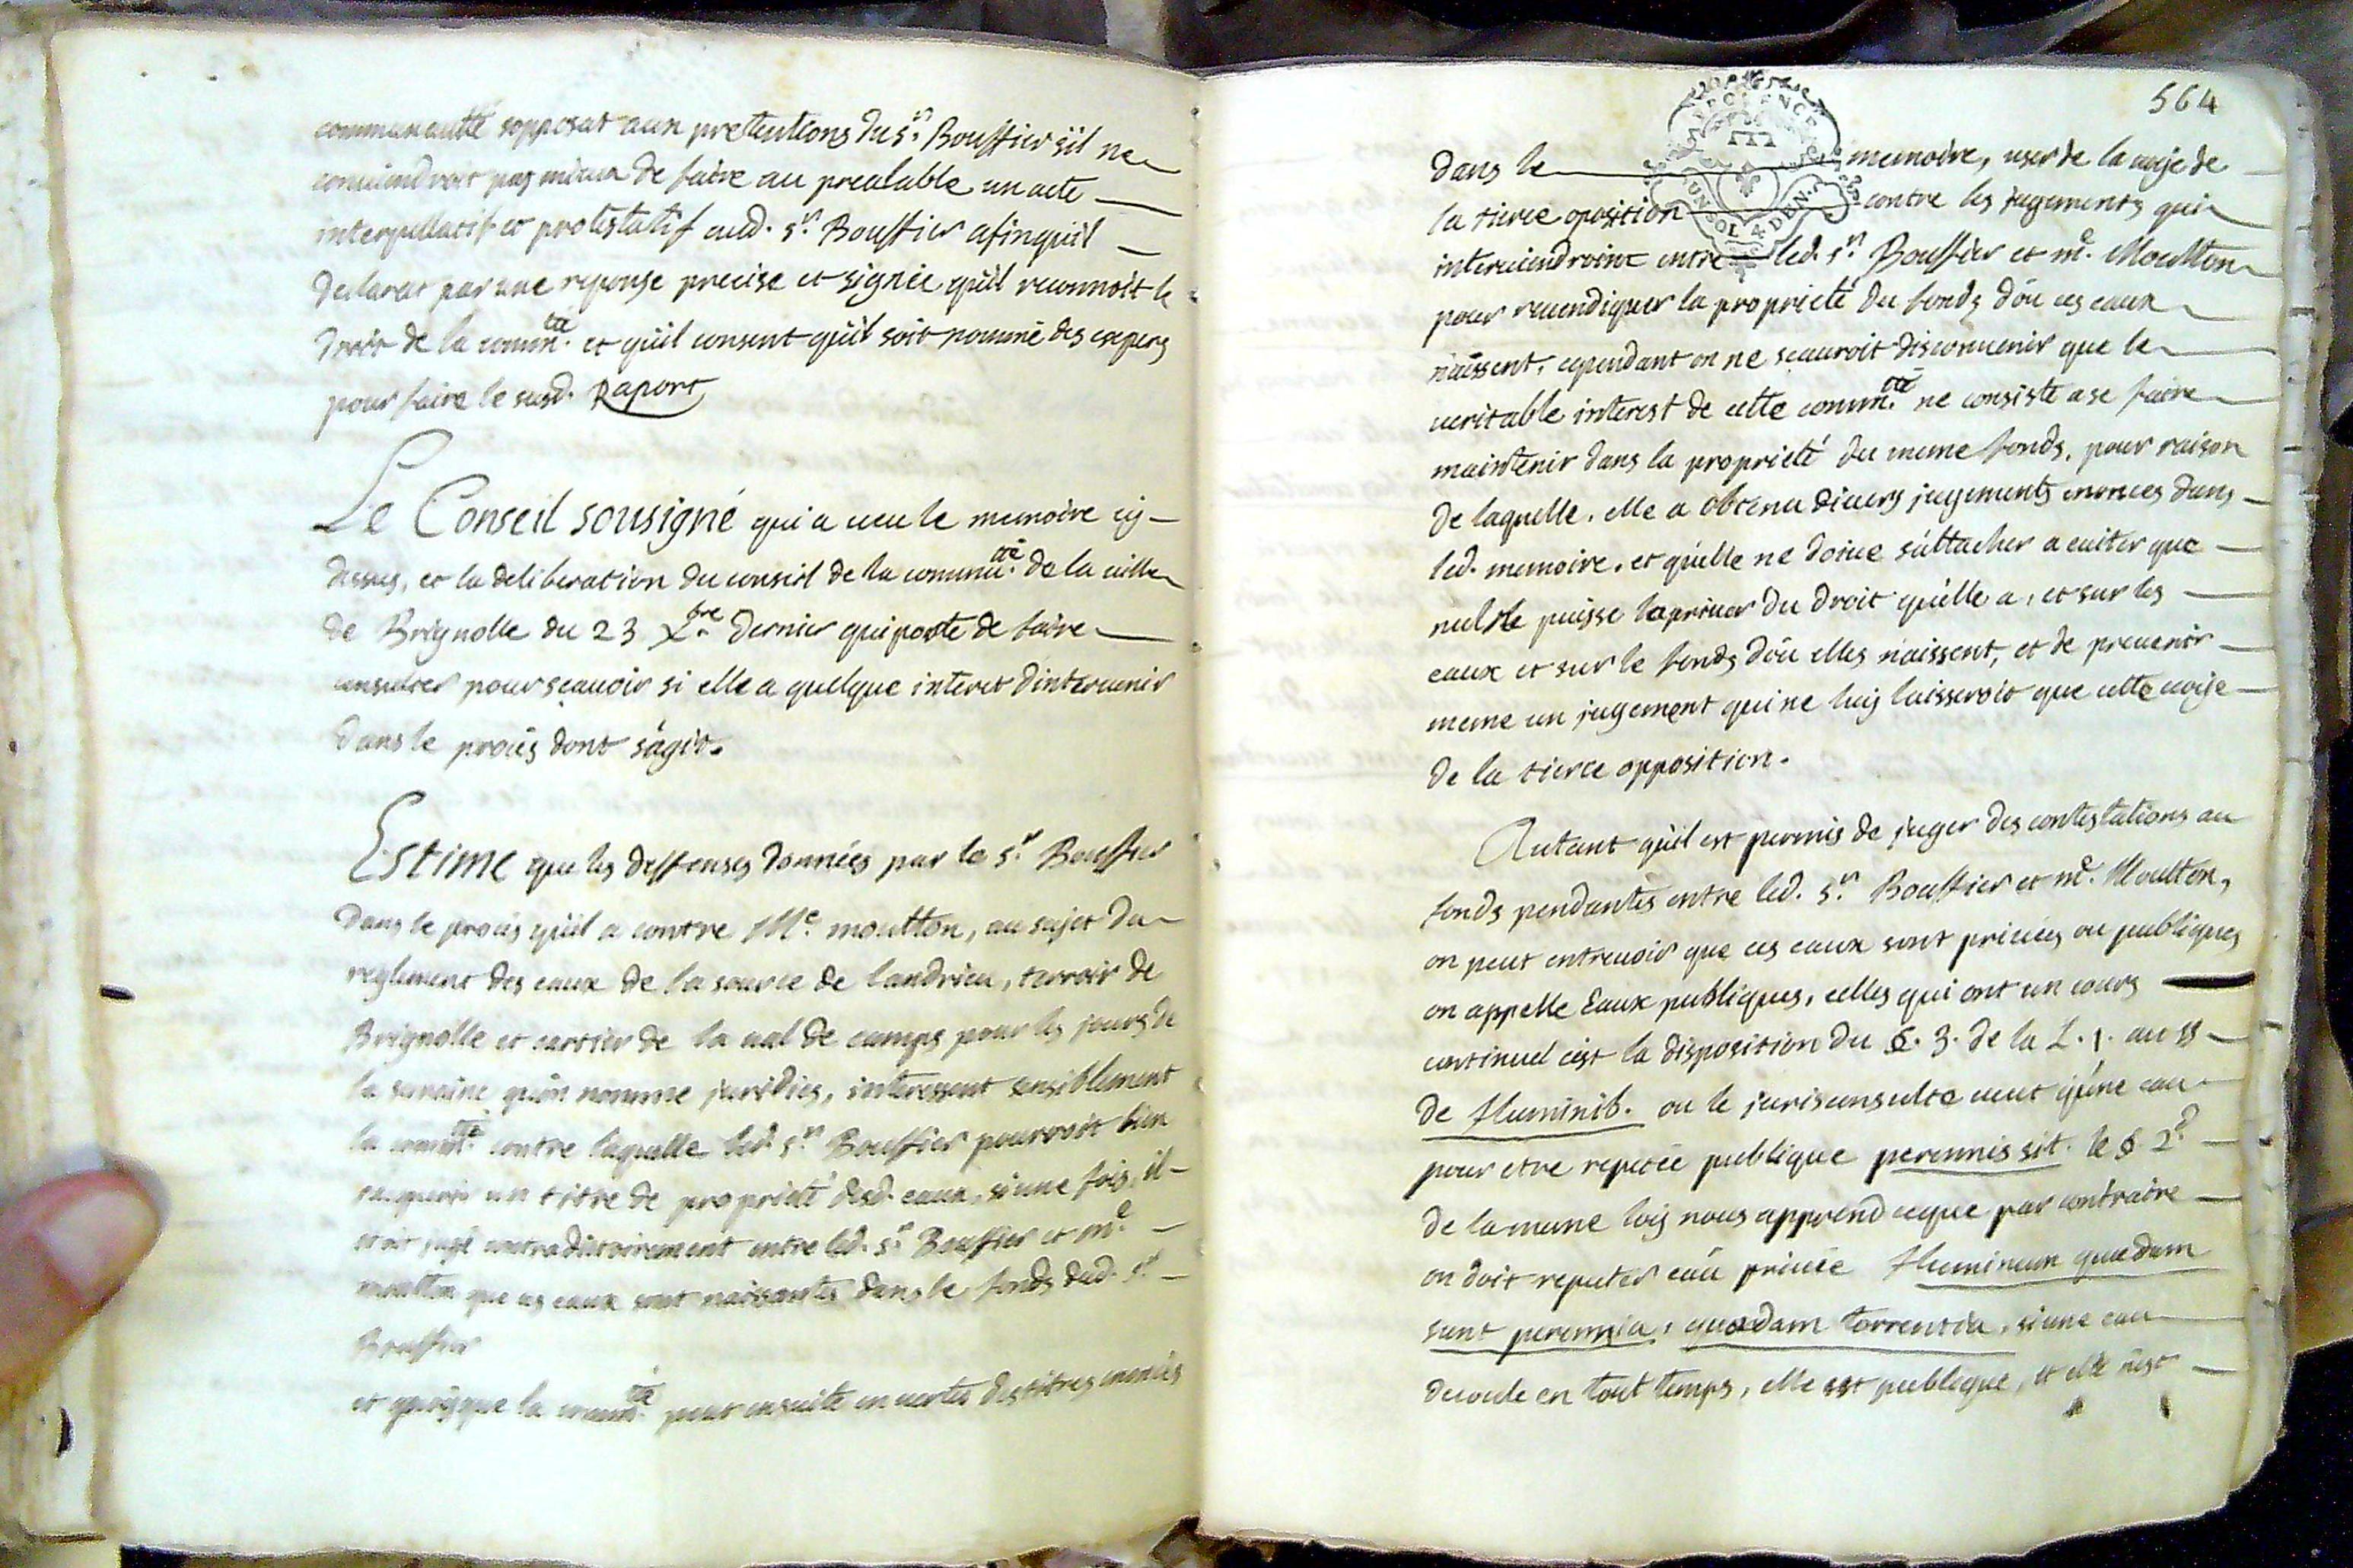 communautté sopposat aux pretentions du sr. Bouffier s'il ne
conuiendroit pas mieux de faire au prealable un acte
interpellatif et protestatif aud. sr. Bouffier afinqu'il
declarat par une reponse precise et signée qu'il reconnoit le
droit de la comm.té et qu'il consent qu'il soit nommé des expers
pour faire le susd. Raport
Le Conseil sousigné qui a ueu le memoire cy
dessus, et la deliberation du conseil de la commu.té de la uille
de Brignolle du 23 Xbre. dernier qui porte de faire
consulter pour sçauoir si elle a quelque interet dinteruenir
dans le procés dont s'agit.
Estime que les deffenses données par le sr. Bouffier
dans le procés qu'il a contre Me. moutton, au sujet du
reglement des eaux de la source de landrieu, terroir de
Brignolle et cartier de la ual de camps pour les jours de
la semaine qu'on nomme juridics, interessent sensiblement
la comm.té contre laquelle led. sr. Bouffier pourroit bien
racquerir un titre de proprieté desd. eaux, si une fois il
etoit jugé contradictoirement entre led. sr. Bouffier et me.
moutton que ces eaux sont naissantes dans le fonds dud. sr.
Bouffier
et quoyque la comm.té peut ensuite en uertu des titres enoncés
564
PROVENCE
UN SOL 4 DEN.
dans le memoire, user de la uoye de
la tierce oposition contre les jugements qui
interuiendroint entre led. sr. Bouffier et me. Moutton
pour reuendiquer la proprieté du fonds d'ou ces eaux
naissent, cependant on ne scauroit disconuenir que le
ueritable interest de cette comm.té ne consiste a se faire
maintenir dans la proprieté du meme fonds, pour raison
de laquelle, elle a obtenu diuers jugements enoncés dans
led. memoire, et qu'elle ne doiue s'attacher a euiter que
nul ne puisse la priuer du droit qu'elle a, et sur les
eaux et sur le fonds d'ou elles naissent, et de preuenir
meme un jugement qui ne luy laisseroit que cette uoye
de la tierce opposition.
Autant qu'il est permis de juger des contestations au
fonds pendantes entre led. sr. Bouffier et me. Moutton,
on peut entreuoir que ces eaux sont priuées ou publiques
on appelle Eaux publiques, celles qui ont un cours
continuel cest la disposition du §. 3. de la L. 1. au ff
de fluminib. ou le jurisconsulte ueut qu'une eau
pour etre reputée publique perennis sit. le § 2e
de la meme loy nous apprend ueque par contraire
on doit reputer eau priuée fluminum quædam
sunt perennia, quædam torrentia, si une eau
decoule en tout temps, elle est publique, et elle n'est